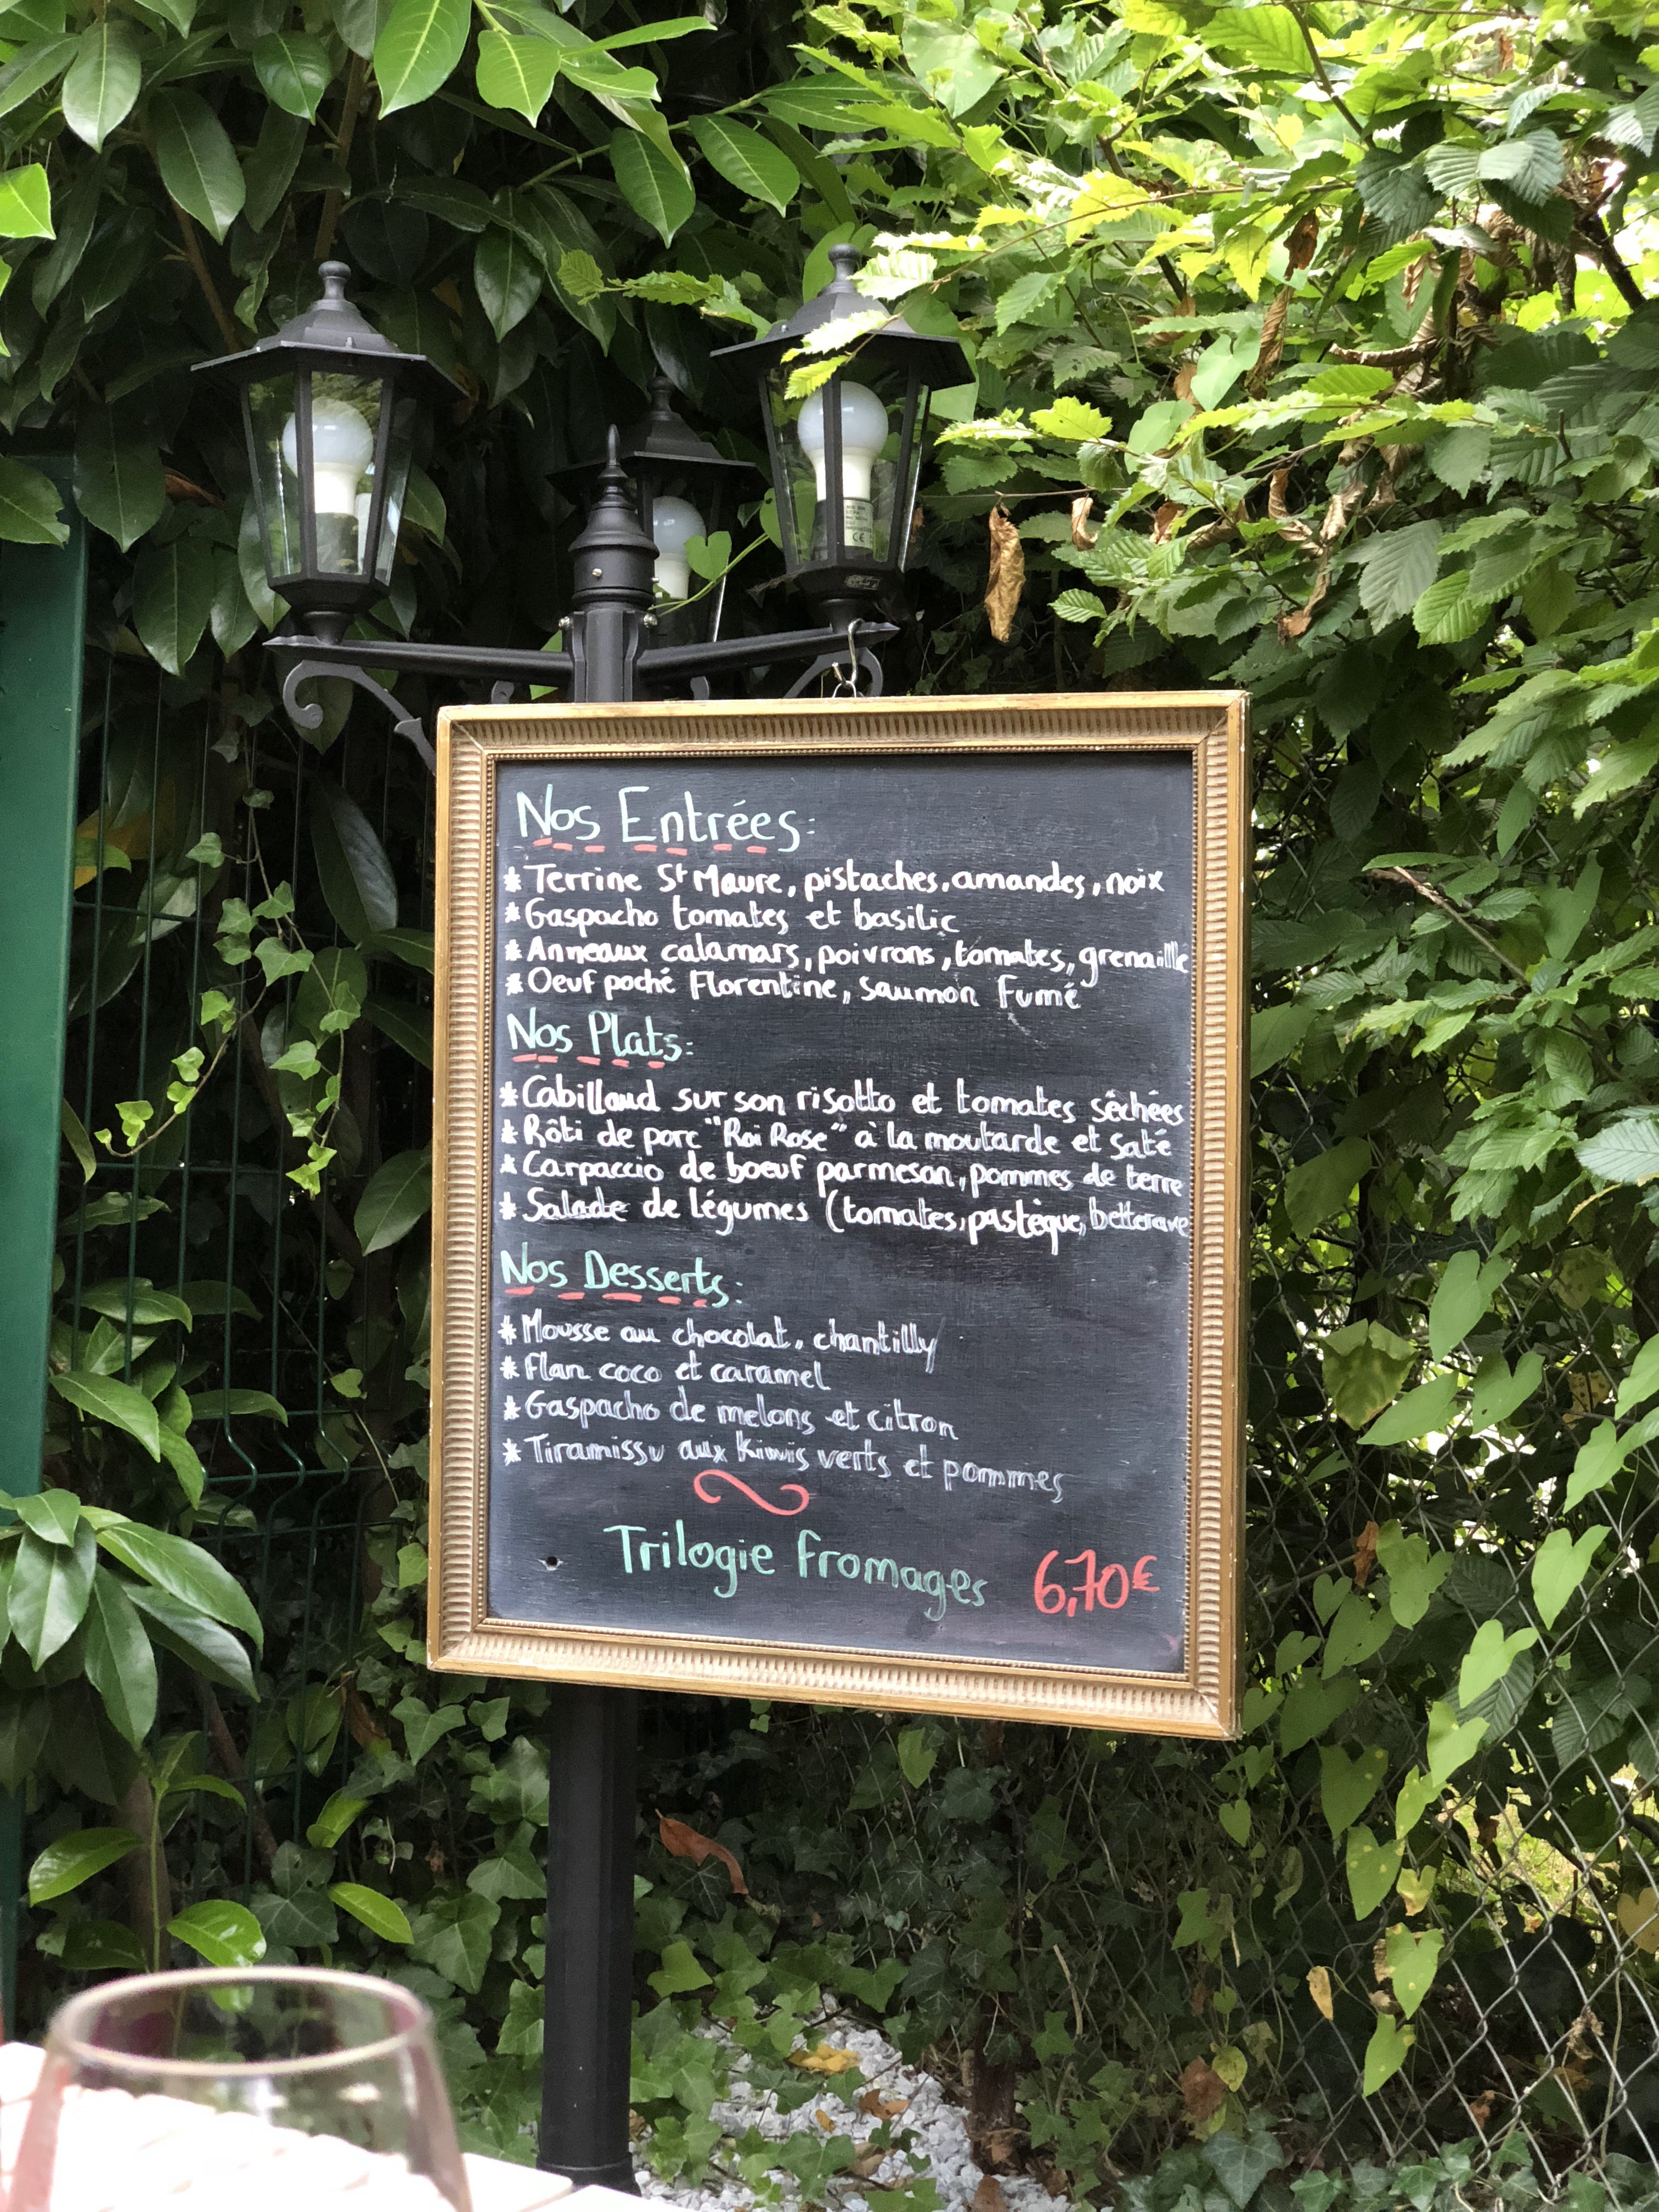 Nos Entrées:
* Terrine St Maure, pistaches, amandes, noix
* Gaspacho tomates et basilic
* Anneaux calamars, poivrons, tomates, grenaille
* Oeuf poché Florentine, saumon fumé
Nos Plats:
* Cabillaud sur son risotto et tomates séchées
* Rôti de porc "Roi Rose" à la moutarde et saté
* Carpaccio de boeuf parmesan, pommes de terre
* Salade de légumes (tomates, pastèque, betterave
Nos Desserts:
* Mousse au chocolat, chantilly
* Flan coco et caramel
* Gaspacho de melons et citron
* Tiramissu aux kiwis verts et pommes
Trilogie fromages 6,70€